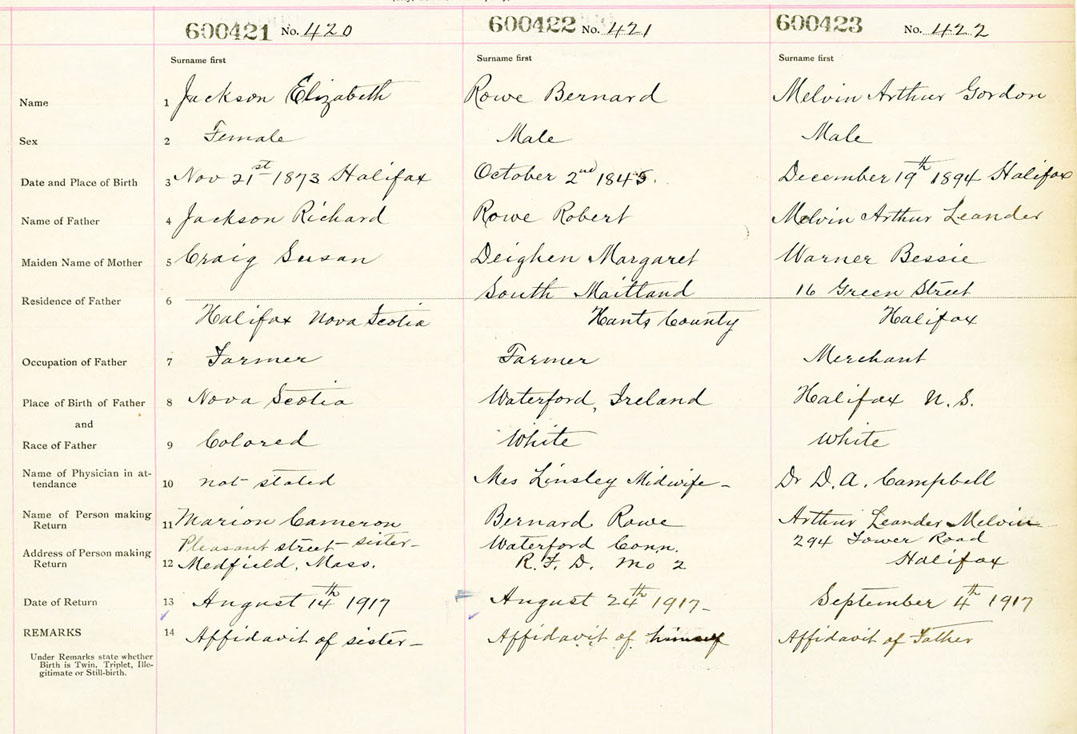 600421 No. 420 600422 No. 421 600423 No. 422
Surname first Surname first Surname first
Name 1 Jackson Elizabeth Rowe Bernard Melvin Arthur Gordon
Sex 2 Female Male Male
Date and Place of Birth 3 Nov 21st 1873 Halifax October 2nd 1845. December 19th 1894 Halifax
Name of Father 4 Jackson Richard Rowe Robert Melvin Arthur Leander
Maiden Name of Mother 5 Craig Susan Deighen Margaret Warner Bessie
Residence of Father 6 South Maitland 16 Green Street
Halifax Nova Scotia Hants County Halifax
Occupation of Father 7 Farmer Farmer Merchant
Place of Birth of Father 8 Nova Scotia Waterford, Ireland Halifax N.S.
and
Race of Father 9 Colored White White
Name of Physician in at-
tendance 10 not stated Mrs Linsley Midwife- Dr D.A. Campbell
Name of Person making
Return 11 Marion Cameron Bernard Rowe Arthur Leander Melvin
Pleasant street- sister- Waterford Conn. 294 Tower Road
Address of Person making
Return 12 Medfield, Mass. R.F.D. No 2 Halifax
Date of Return 13 August 14th 1917 August 24th 1917- September 4th 1917
REMARKS 14 Affidavit of sister- Affidavit of himself Affidavit of Father
Under Remarks state whether
Birth is Twin, Triplet, Ille-
gitimate or Still-birth.